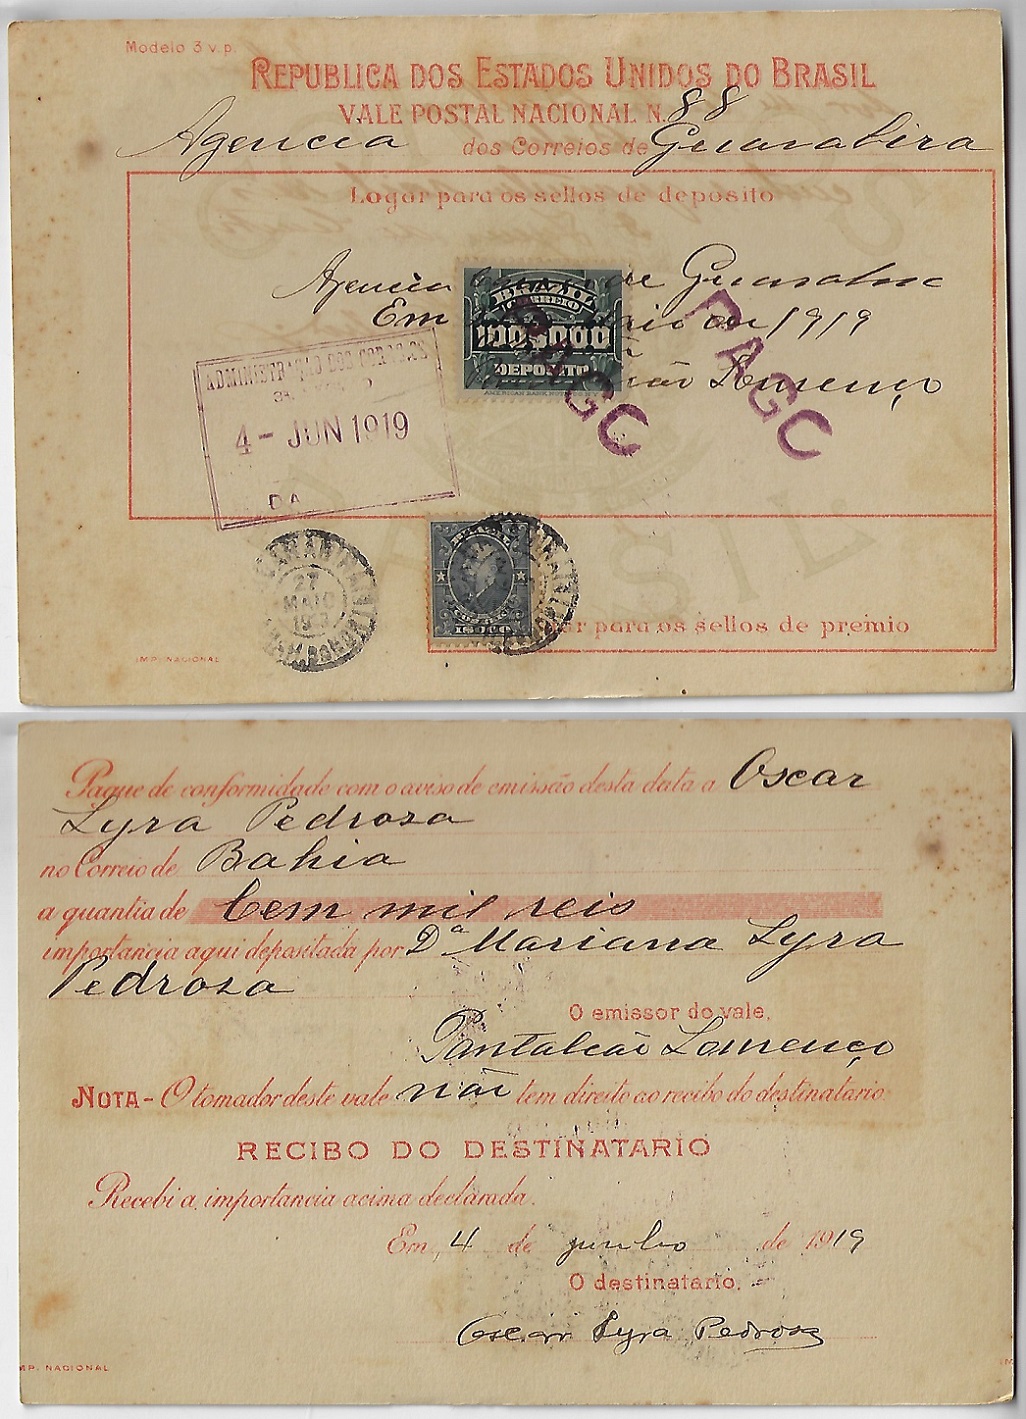 Modelo 3 v.p.
REPUBLICA DOS ESTADOS UNIDOS DO BRASIL
VALE POSTAL NACIONAL N. 88
Agencia dos Correios de Guarabira
Logar para os sellos de deposito
Agencia de Guarabira
Em de 1919
Lourenço
BRAZIL
CORREIO
100$000
DEPOSITO
AMERICAN BANK NOTE
PAGO
PAGO
ADMINISTRAÇÃO DOS CORREIOS
3ª
4 - JUN 1919
DA
27
MAIO
para os sellos de premio
IMP. NACIONAL
Pague de conformidade com o aviso de emissão desta data a Oscar
Lyra Pedrosa
no Correio de Bahia
a quantia de Cem mil reis
importancia aqui depositada por Dª Mariana Lyra
Pedrosa
O emissor do vale,
Pantaleão Lourenço
NOTA - O tomador deste vale não tem direito ao recibo do destinatario.
RECIBO DO DESTINATARIO
Recebi a importancia acima declarada.
Em, 4 de junho de 1919
O destinatario,
Oscar Lyra Pedrosa
MP. NACIONAL